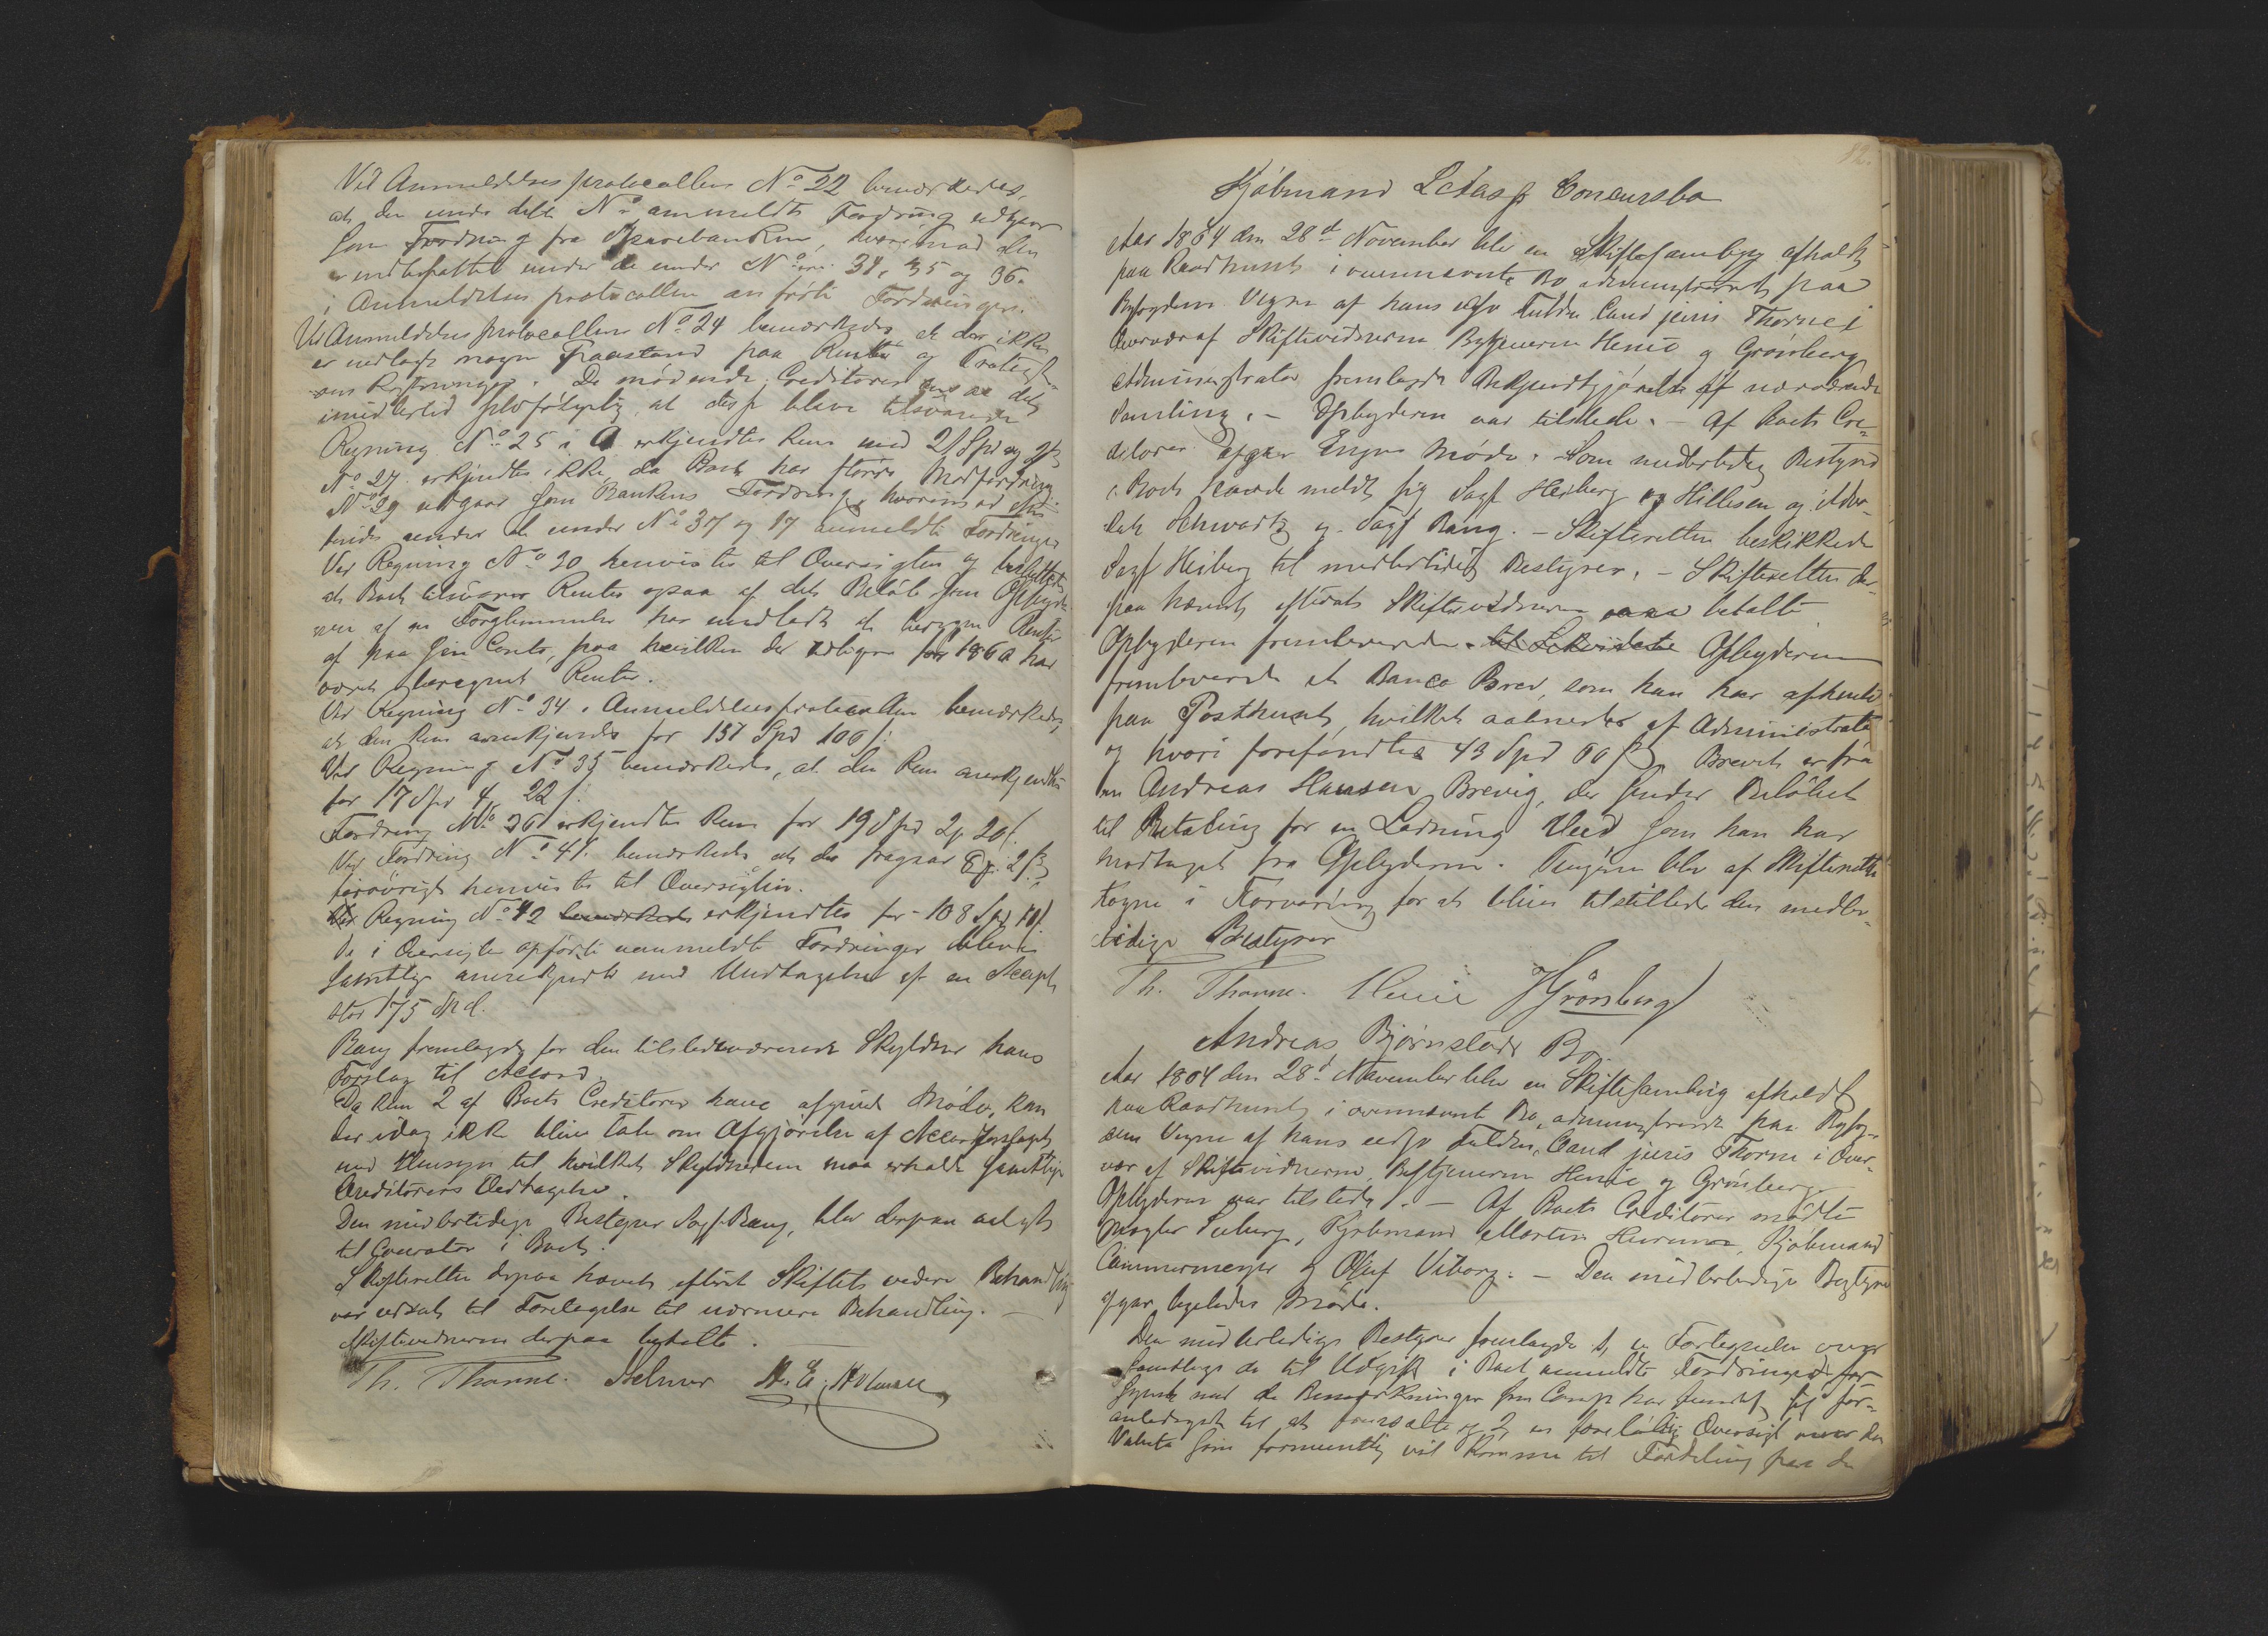 Ved Anmeldelsesprotocollens No 22 bemærkedes,
at den under dette No anmeldte Fordring udgaar
som Fordring fra Sparebanken, hvorimod den
er indbefattet under de under No 34, 35 og 36
i Anmeldelsesprotocollen anførte Fordringer.
Ved Anmeldelsesprotocollens No 24 bemærkedes at der ikke
er nedlagt nogen Paastand paa Renter og Protest-
omkostninger. De mødende Creditorer det
imidlertid selvfølgelig, at disse bleve tilsvarede
Regning No 25 i erkjendtes kun med 21 Spd og
No 27 erkjendtes ikke da Boet har større Modfordring
No 29 udgaar som Bankens Fordring, hvorimod
under de under No 37 og 17 anmeldte Fordringer
Ved Regning No 30 henvistes til Oversigten og besluttedes
at Boet tilsvarer Renter ogsaa af det Beløb som Opbyde-
ren af en Forglemmelse har undladt at beregne Renter
af paa sin Conto, paa hvilken der tidligere har
været beregnet Renter.
Ved Regning No 34 i Anmeldelsesprotocollen bemærkedes,
at den kun anerkjendes for 137 Spd 100 s.
Ved Regning No 35 bemærkedes, at den kun anerkjendtes
for 17 Spd 4 22 s.
Fordring No 36 erkjendtes kun for 19 Spd 2 20 s.
Ved Fordring No 41 bemærkedes at der fragaar 2 s,
forøvrigt henvistes til Oversigten.
Regning No 42 bemærkedes erkjendtes for 108 Spd
De i Oversigten opførte uanmeldte Fordringer bleve
samtlige anerkjendte med Undtagelse af en Accept
stor 175 Spd.
Bang fremlagde for den tilstedeværende Skyldner hans
Forslag til Accord.
Da kun 2 af Boets Creditorer have afgivet Møde, kan
der idag ikke blive Tale om Afgjørelse af Accordforslaget
med Hensyn til hvilket Skyldneren maa erholde samtlige
Creditorers Vedtagelse.
Den midlertidige Bestyrer Sagf. Bang, blev derpaa valgt
til Curator i Boet.
Skifteretten derpaa hævet efterat Skiftets videre Behandling
var udsat til Foretagelse til nærmere Behandling. —
Skiftevidnerne derpaa betalte.
Th. Thorne. Helmer
Kjøbmand Concursbo
Aar 1864 den 28d November blev en Skiftesamling afholdt
paa Raadhuset i ovennævnte Bo administreret paa
Byfogdens Vegne af hans edsv Fuldm. Cand juris Thorne i
Overvær af Skiftevidnerne Bytjenerne Henie og Grønberg
Administrator fremlagde Bekjendtgjørelse af nærværende
Samling. – Opbyderen var tilstede. – Af Boets Cre-
ditorer afgav Ingen Møde. – Som midlertidig Bestyrer
i Boet havde meldt sig Sagf Heiberg og Hillesen og
Schwartz og Sagf Bang. – Skifteretten beskikkede
Sagf Heiberg til midlertidig Bestyrer. – Skifteretten der-
paa hævet efterat Skiftevidnerne vare betalte
Opbyderen fremleverede Opbyderen
fremleverede et Banco Brev, som han har afhentet
paa Posthuset, hvilket aabnedes af Administrator
og hvori forefandtes 43 Spd 60 s. Brevet er fra
en Andreas Hansen Brevig, der sender Beløbet
til Betaling for en Ladning Veed som han har
modtaget fra Opbyderen. Pengene blev af Skifteretten
tagne i Forvaring for at blive tilstillede den midler-
tidige Bestyrer
Th. Thorne. Henie Grønberg
Andreas Bjørnstads Bo.
Aar 1864 den 28d November blev en Skiftesamling afholdt
paa Raadhuset i ovennævnte Bo, administreret paa Byfog-
dens Vegne af hans edsv Fuldm. Cand juris Thorne i Over-
vær af Skiftevidnerne, Bytjenerne Henie og Grønberg
Opbyderen var tilstede. – Af Boets Creditorer mødte
Mægler Kjøbmand Morten Kjøbmand
Cammermeyer og Oluf Viborg. – Den midlertidige Bestyrer
afgav ligeledes Møde.
Den midlertidige Bestyrer fremlagde 1, en Fortegnelse over
samtlige de til Udgift i Boet anmeldte Fordringer for-
synede med de Bemærkninger som har fundet sig for-
anledigede til at fremsætte og 2, en foreløbig Oversigt over den
Valuta som formentlig vil komme til Fordeling paa de